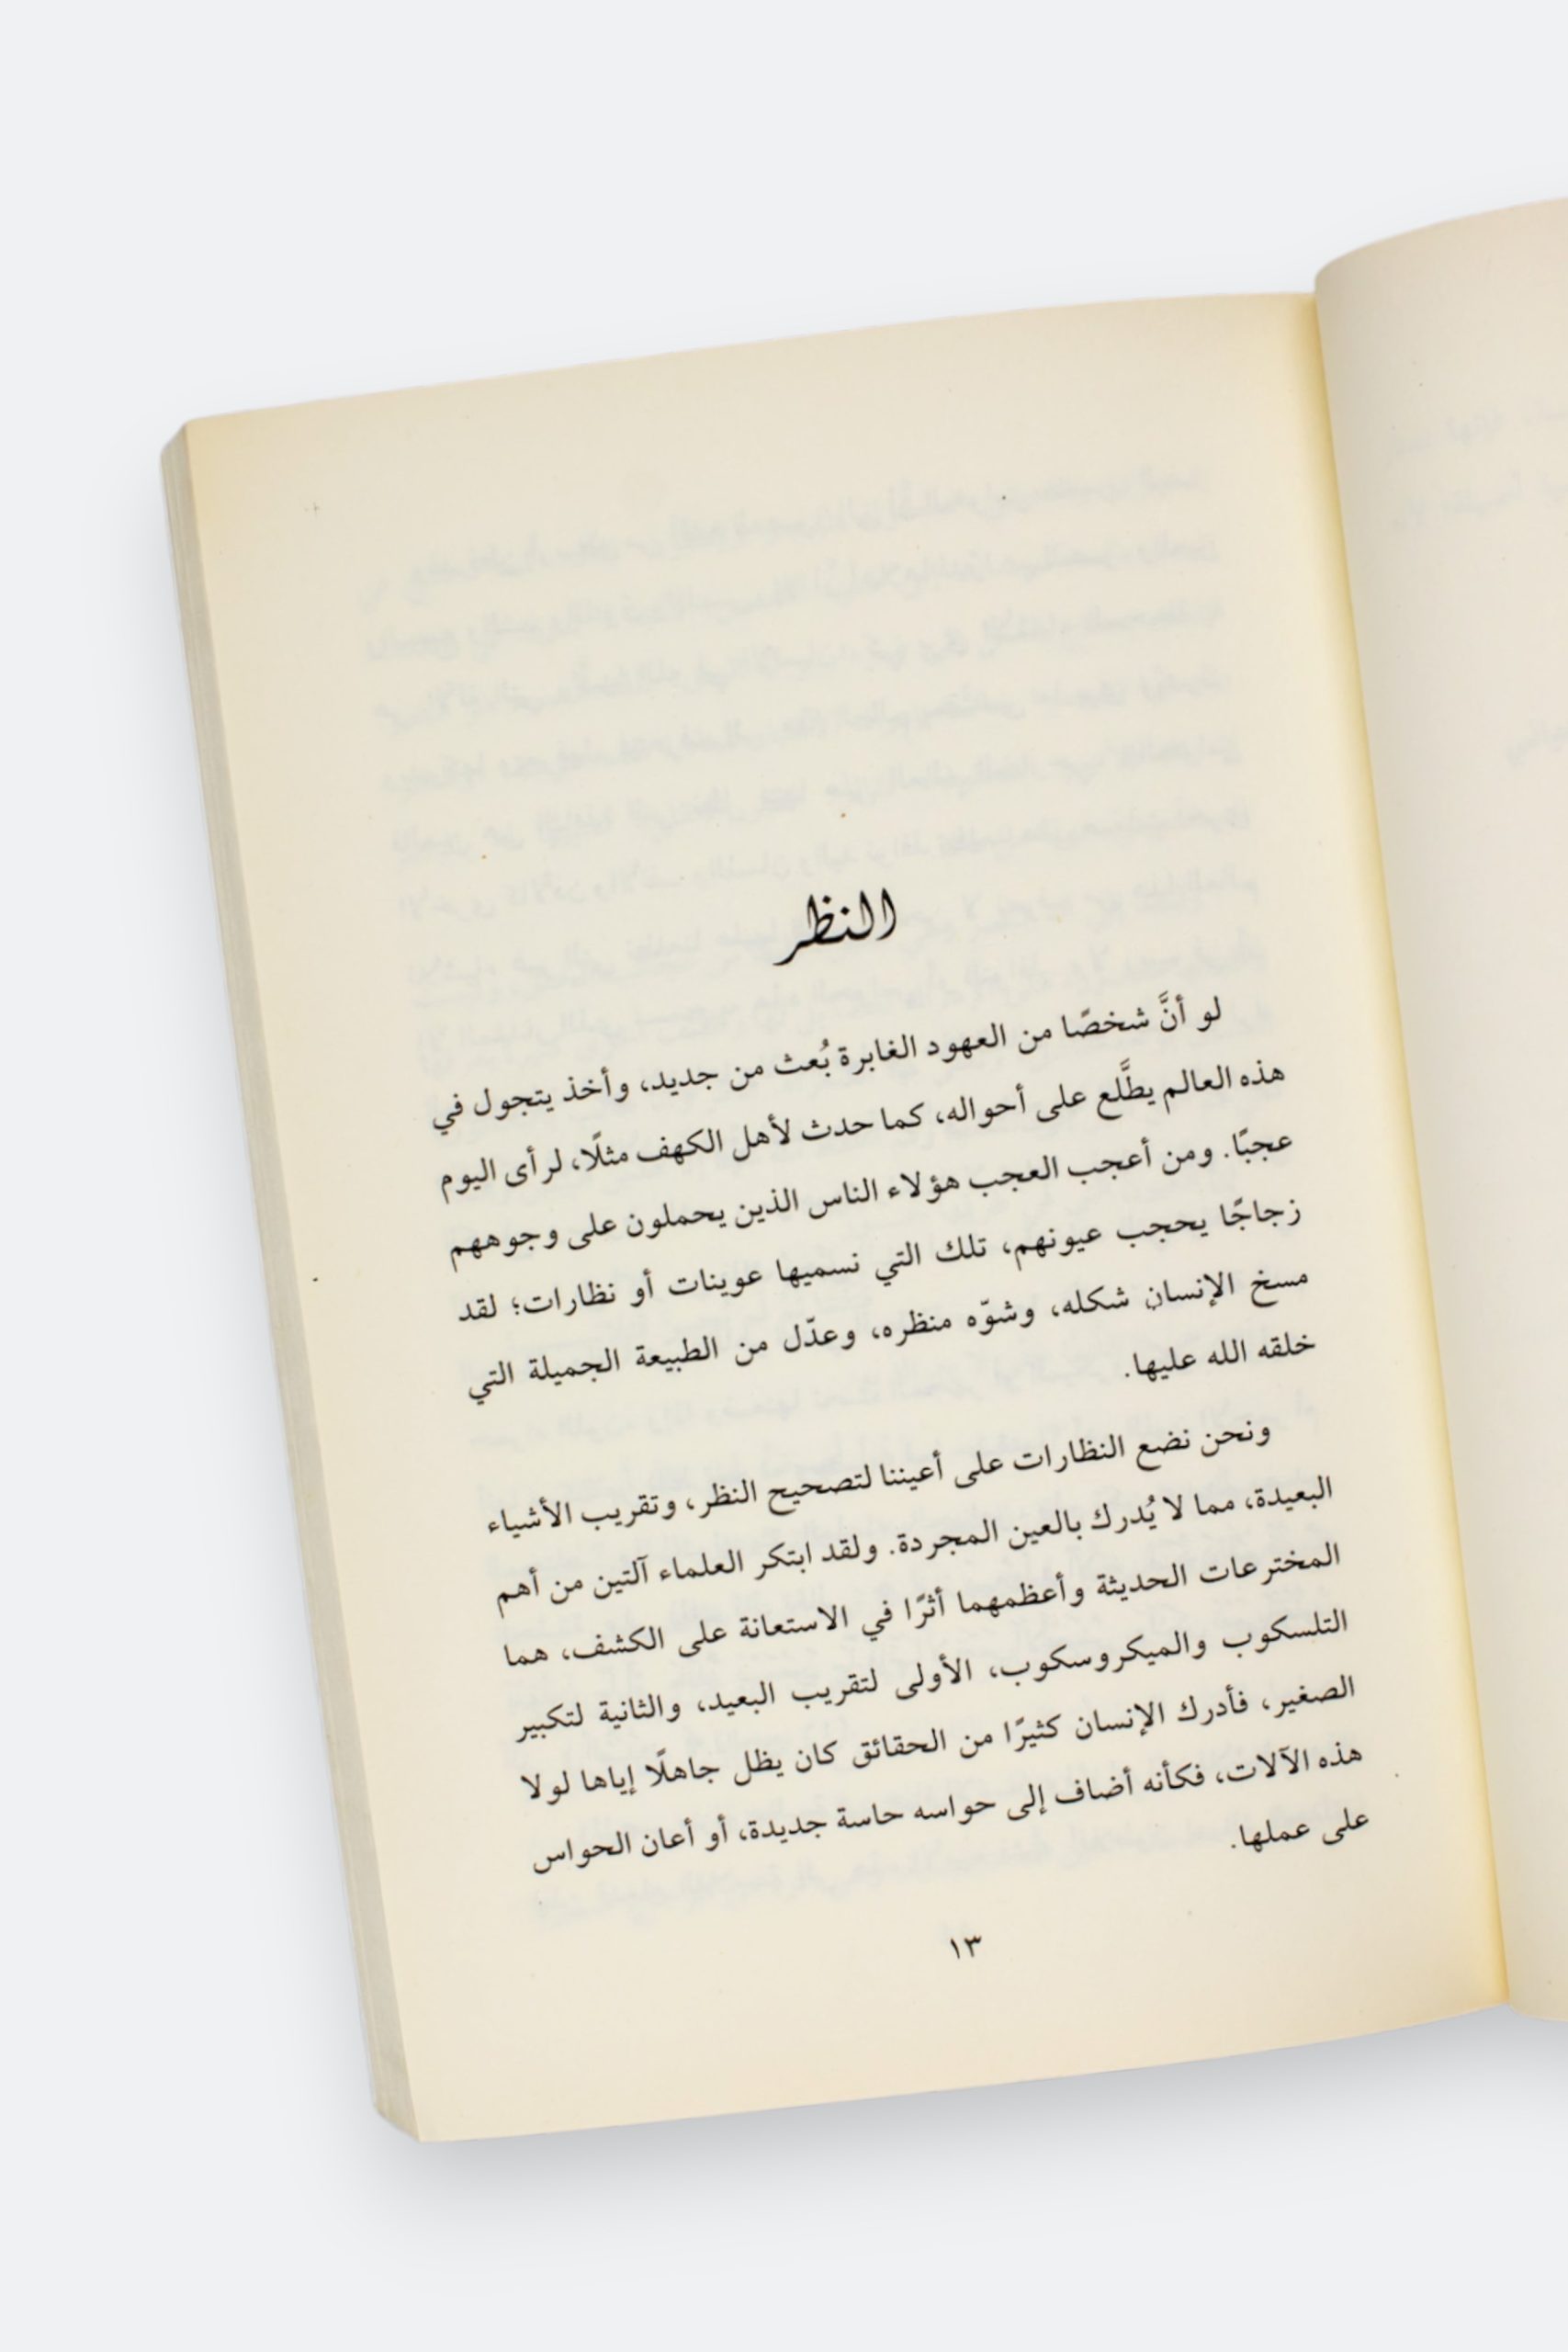 النظر
لو أنَّ شخصًا من العهود الغابرة بُعث من جديد، وأخذ يتجول في
هذه العالم يطَّلع على أحواله، كما حدث لأهل الكهف مثلًا، لرأى اليوم
عجبًا. ومن أعجب العجب هؤلاء الناس الذين يحملون على وجوههم
زجاجًا يحجب عيونهم، تلك التي نسميها عوينات أو نظارات؛ لقد
مسخ الإنسان شكله، وشوّه منظره، وعدّل من الطبيعة الجميلة التي
خلقه الله عليها.
ونحن نضع النظارات على أعيننا لتصحيح النظر، وتقريب الأشياء
البعيدة، مما لا يُدرك بالعين المجردة. ولقد ابتكر العلماء آلتين من أهم
المخترعات الحديثة وأعظمهما أثرًا في الاستعانة على الكشف، هما
التلسكوب والميكروسكوب، الأولى لتقريب البعيد، والثانية لتكبير
الصغير، فأدرك الإنسان كثيرًا من الحقائق كان يظل جاهلًا إياها لولا
هذه الآلات، فكأنه أضاف إلى حواسه حاسة جديدة، أو أعان الحواس
على عملها.
١٣